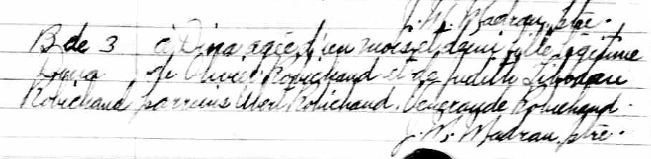 J. M. Madran ptre.
B de 3 à Dina agée d'un mois et demi fille légitime
Dina de Olivier Robichaud et de Judith Thibodeau
Robichaud parrains Robichaud. Venerande Robichaud.
J. M. Madran ptre.